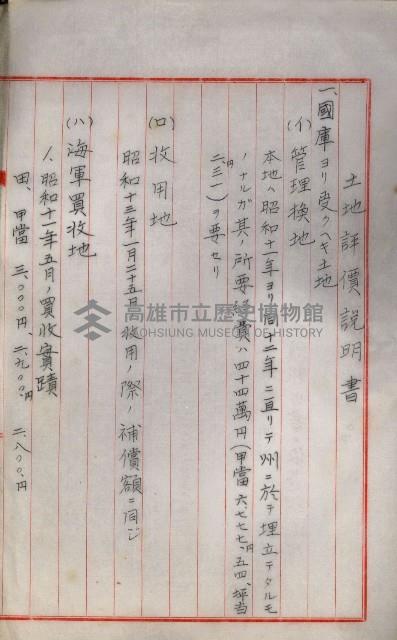 土地評價說明書
一、國庫ヨリ受クヘキ土地
(イ)管理換地
本地ハ昭和十一年ヨリ同十二年ニ亘リテ州ニ於テ埋立テタルモ
ノナルガ其ノ所要経費ハ四十四萬円(甲當六、七七七、円五四、坪当
二、円三一)ヲ要セリ
(ロ)收用地
昭和十三年一月二十五日收用ノ際ノ補償額ニ同ジ
(ハ)海軍買收地
1、昭和十一年五月ノ買收實蹟
田、甲當 三、〇〇〇円、二、九〇〇、円 二、八〇〇、円
高雄市立歷史博物館
KAOHSIUNG MUSEUM OF HISTORY